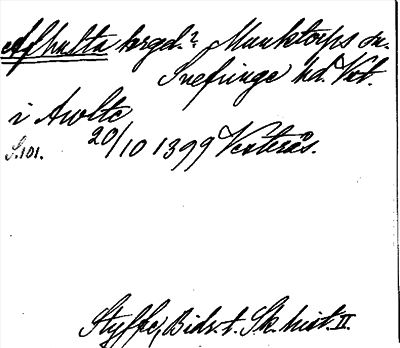 Afhulta torgd.? Munktorps sn.
Snefringe hd. Vstm.
i Awlte
S. 101. 20/10 1399 Vesterås.
Styffe, Bidr. t. Sk. hist. II.